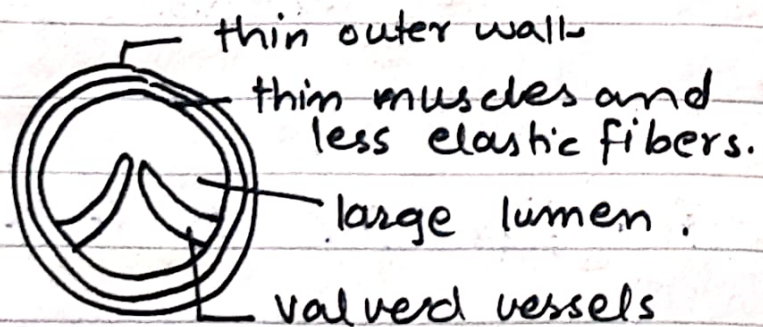 thin outer wall
thin muscles and
less elastic fibers.
large lumen.
valved vessels